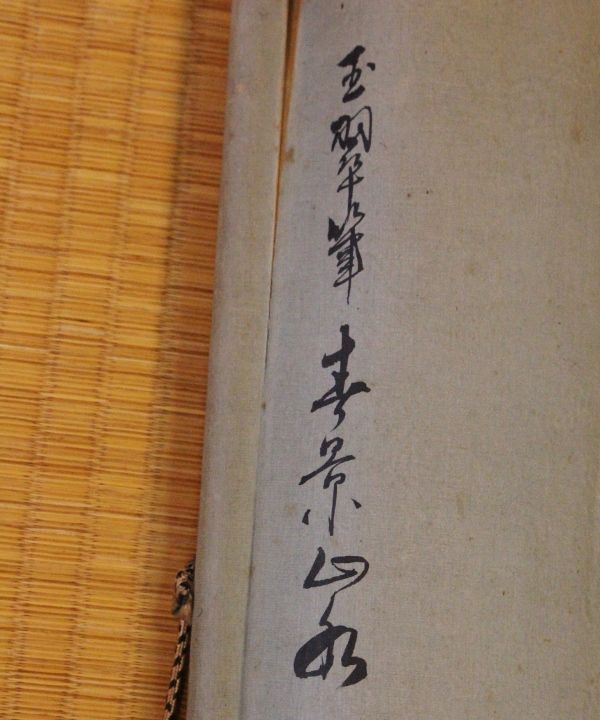 玉翠筆 春景山水